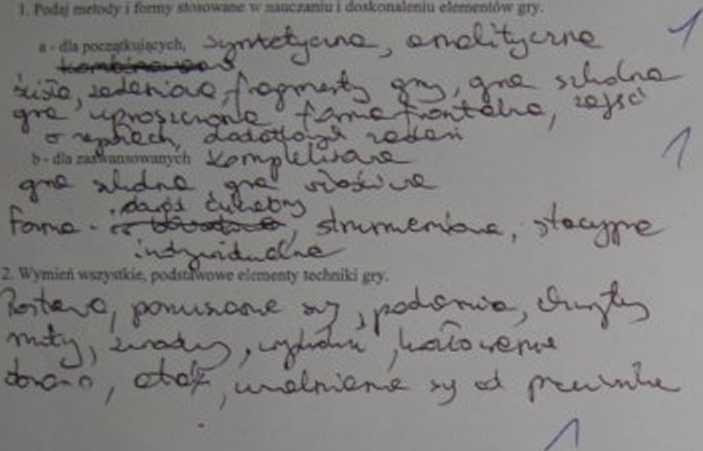 1. Podaj metody i formy stosowane w nauczaniu i doskonaleniu elementów gry.
a - dla początkujących, syntetyczna, analityczna
ścisła, zadaniowa, fragmenty gry, gra szkolna
gra uproszczona forma frontalna, zajęć
w zadań
b - dla zaawansowanych kompleksowa
gra szkolna, gra właściwa
forma - strumieniowa, stacyjna
indywidualna
2. Wymień wszystkie, podstawowe elementy techniki gry.
Postawa, poruszanie się, podania, chwyty
rzuty, zwody, kozłowanie
uwalnianie się od przeciwnika
1
1
1